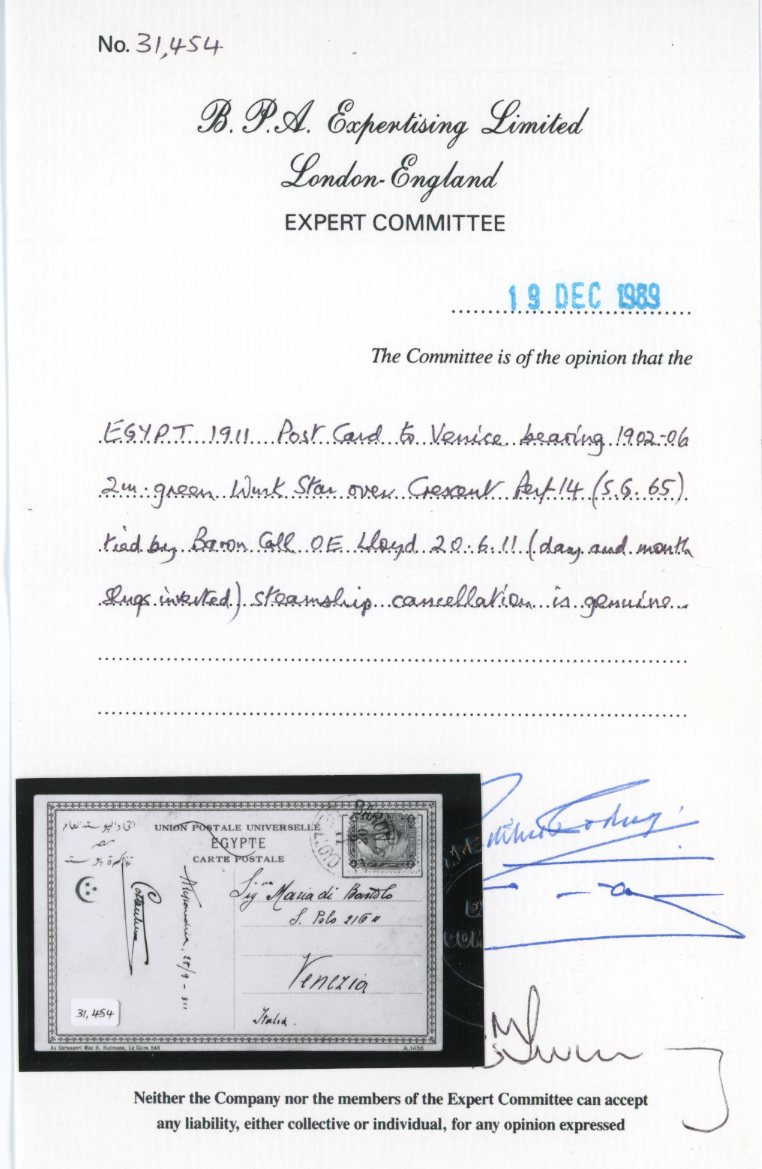 No. 31,454
B. P. A. Expertising Limited
London-England
EXPERT COMMITTEE
19 DEC 1989
The Committee is of the opinion that the
EGYPT 1911 Post Card to Venice bearing 1902-06
2m. green Wmk Star over Crescent Perf 14 (S.G. 65)
tied by Baron Call OE Lloyd 20.6.11 (day and month
slugs inverted) steamship cancellation is genuine
UNION POSTALE UNIVERSELLE
EGYPTE
CARTE POSTALE
مصر
تذكرة بوستة
Sig.na Maria di Bartolo
S. Polo
Venezia
Italia.
Alessandria
31,454
Au Cartosport Max H. Rudmann, Le Caire
Neither the Company nor the members of the Expert Committee can accept
any liability, either collective or individual, for any opinion expressed